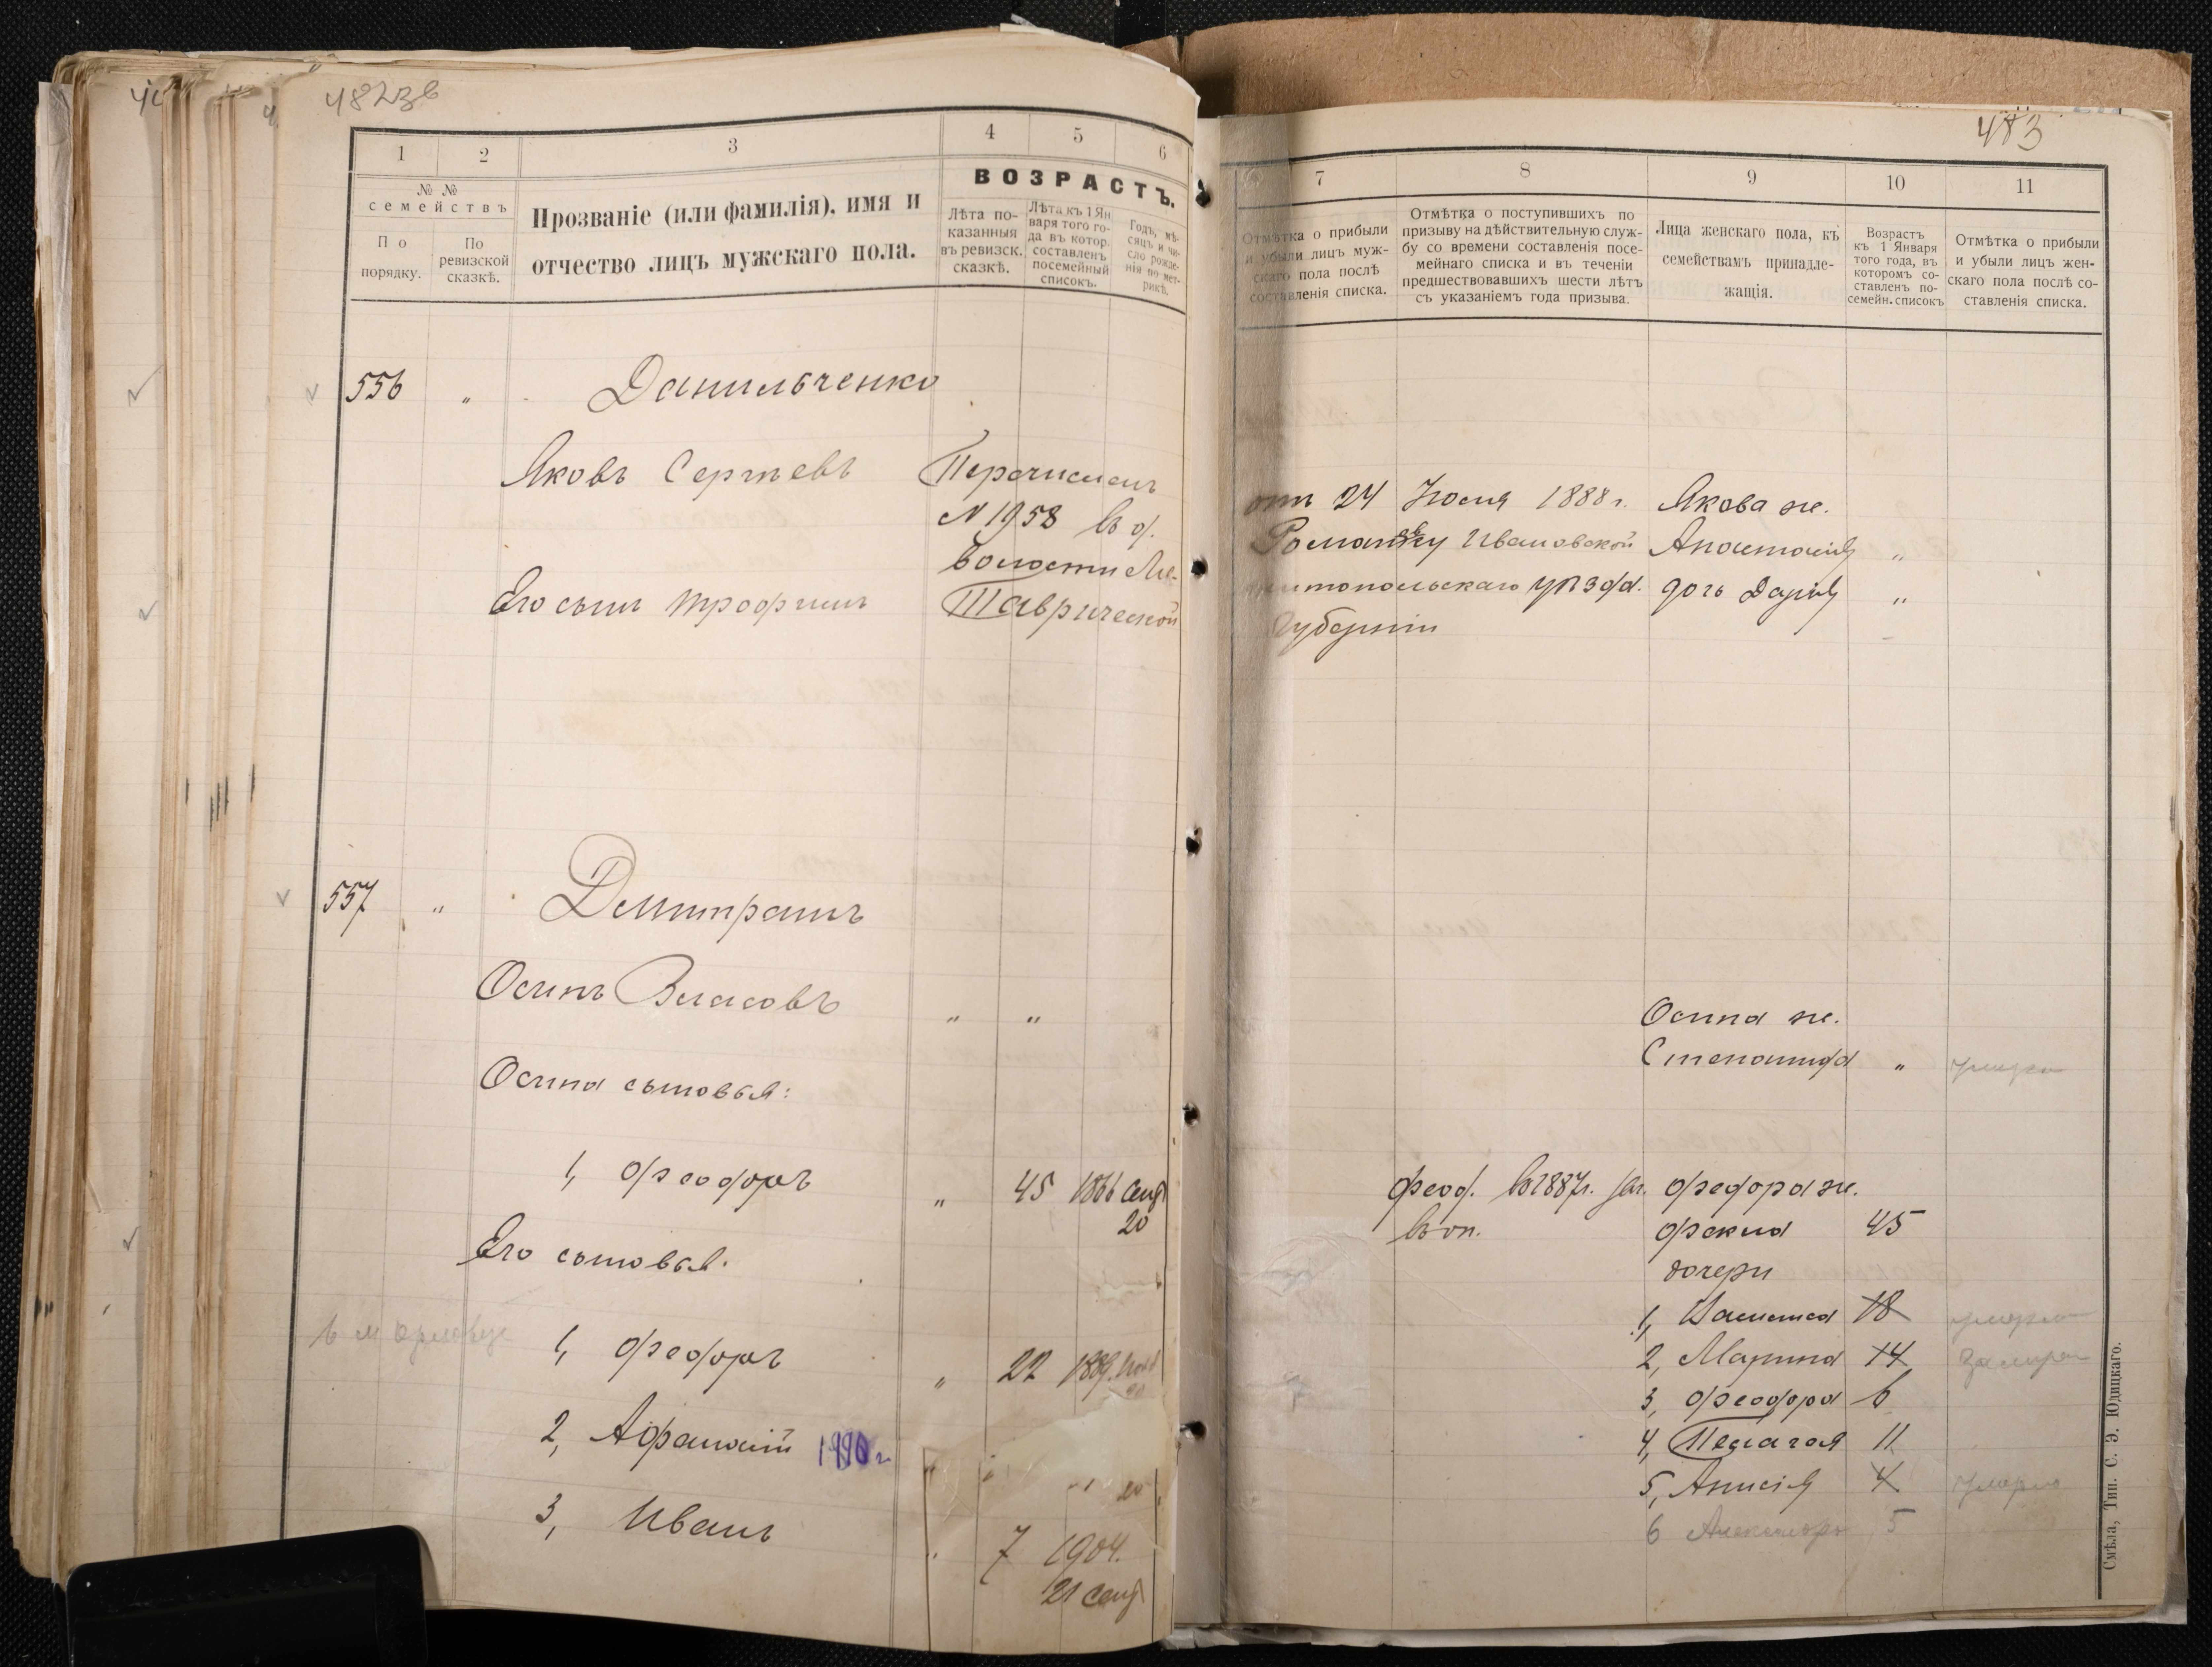 482зв
1 2 3 4 5 6
№ №
семействъ
По порядку.
По ревизской сказкѣ.
Прозваніе (или фамилія), имя и
отчество лицъ мужскаго пола.
ВОЗРАСТЪ.
Лѣта по-
казанныя
въ ревизск.
сказкѣ.
Лѣта къ 1 Ян
варя того го-
да въ котор.
составленъ
посемейный
списокъ.
Годъ, мѣ-
сяцъ и чи-
сло рожде-
нія по мет-
рикѣ.
556 " Данильченко
Яковъ Сергѣевъ Перечисленъ
N 1958 въ с.
волости Ме-
Его сынъ Трофимъ Таврической
557 " Демитрашъ
Осипъ Власовъ " "
Осипа сыновья:
1, Феодоръ " 45 1866 Сент
20
Его сыновья:
1, Феодоръ " 22 1889.
2, Афанасій
20
3, Иванъ " 7 1904.
21 Сент
483
7 8 9 10 11
Отмѣтка о прибыли
и убыли лицъ муж-
скаго пола послѣ
составленія списка.
Отмѣтка о поступившихъ по
призыву на дѣйствительную служ-
бу со времени составленія посе-
мейнаго списка и въ теченіи
предшествовавшихъ шести лѣтъ
съ указаніемъ года призыва.
Лица женскаго пола, къ
семействамъ принадле-
жащія.
Возрастъ
къ 1 Января
того года, въ
которомъ со-
ставленъ по-
семейн. списокъ
Отмѣтка о прибыли
и убыли лицъ жен-
скаго пола послѣ со-
ставленія списка.
отъ 24 Іюля 1888 г. Якова ж.
Ивановской Анастасія "
литопольскаго уѣзда. дочь Дарія "
Губерніи
Осипа ж.
Степанида " умерла
Феод. в 1887г. Феодора ж.
въ оп. Фекла 45
дочери
1, 18 умерла
2, Марина 14
3, Феодора 6
4, Пелагея 11
5, Анисія 4 умерла
6 Александра 5
Смѣла, Тип. С. Э. Юдицкаго.